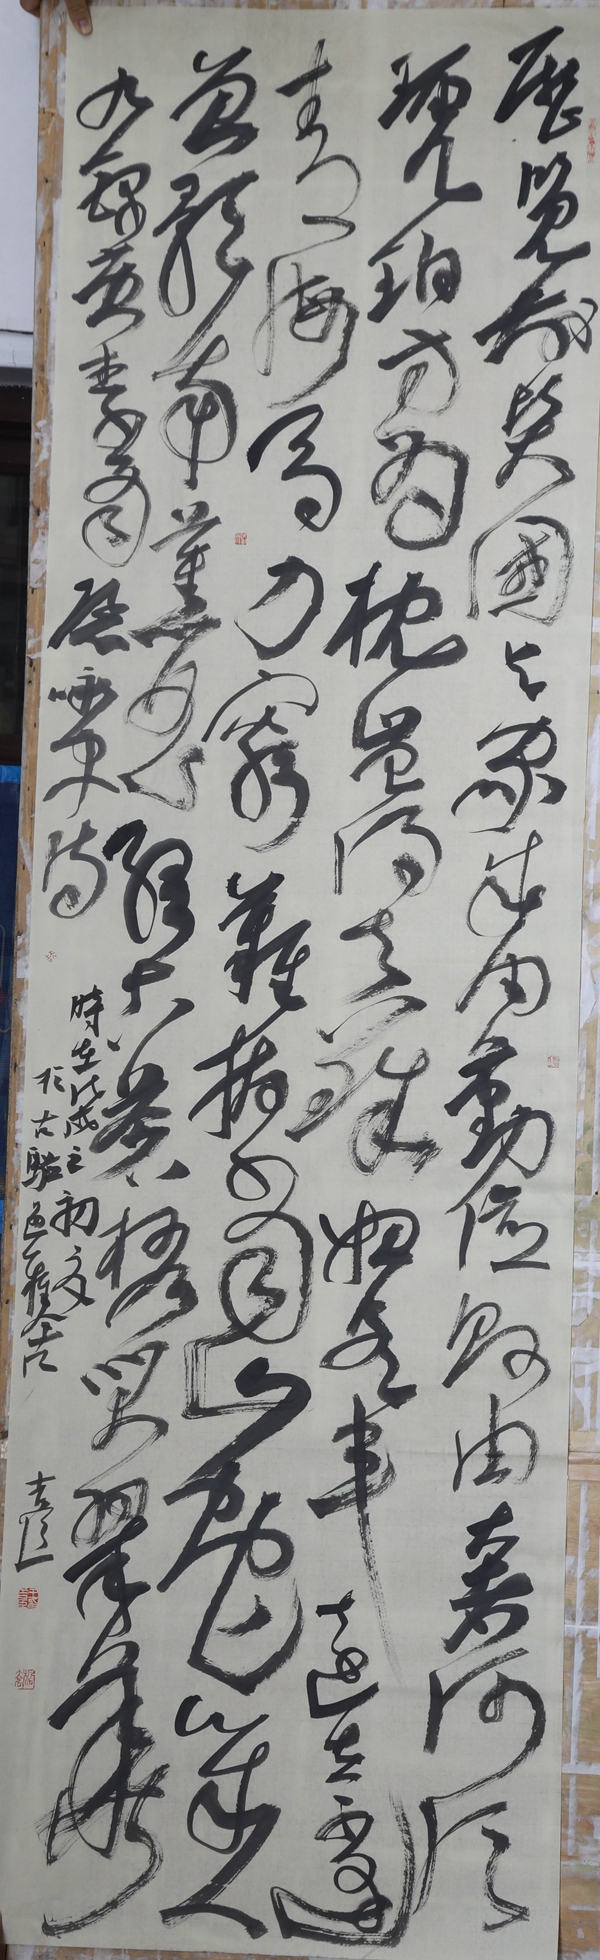 歷覽前賢國與家成由勤儉敗由奢何須
琥珀方為枕豈得真珠始是車運去不逢
青海馬力窮難拔蜀山蛇幾人
曾預南薰曲終古蒼梧哭翠華
右錄唐李商隱咏史詩
時在戊戌之初夏
於古駘邑雅舍